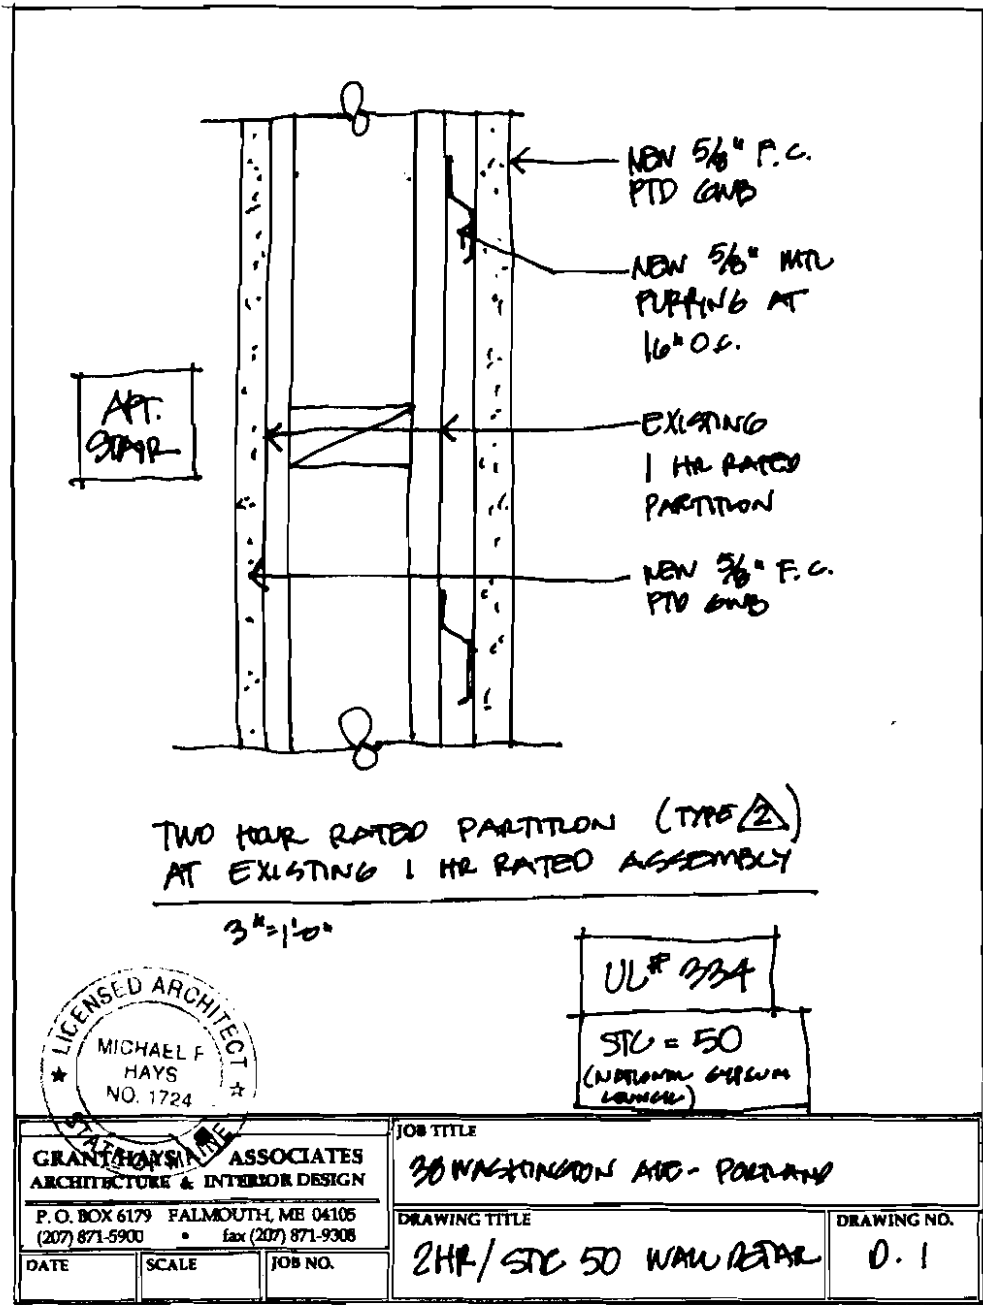 NEW 5/8" F.C.
PTD GWB
NEW 5/8" MTL
FURRING AT
16" O.C.
APT.
STAIR
EXISTING
1 HR RATED
PARTITION
NEW 5/8" F.C.
PTD GWB
TWO HOUR RATED PARTITION (TYPE 2)
AT EXISTING 1 HR RATED ASSEMBLY
3"=1'-0"
UL# 334
STC = 50
(NATIONAL GYPSUM
COUNCIL)
LICENSED ARCHITECT
MICHAEL F
HAYS
NO. 1724
STATE OF MAINE
GRANT HAYS ASSOCIATES
ARCHITECTURE & INTERIOR DESIGN
P. O. BOX 6179 FALMOUTH, ME 04105
(207) 871-5900 • fax (207) 871-9308
DATE SCALE JOB NO.
JOB TITLE
38 WASHINGTON AVE - PORTLAND
DRAWING TITLE
2HR/ STC 50 WALL DETAIL
DRAWING NO.
D. 1